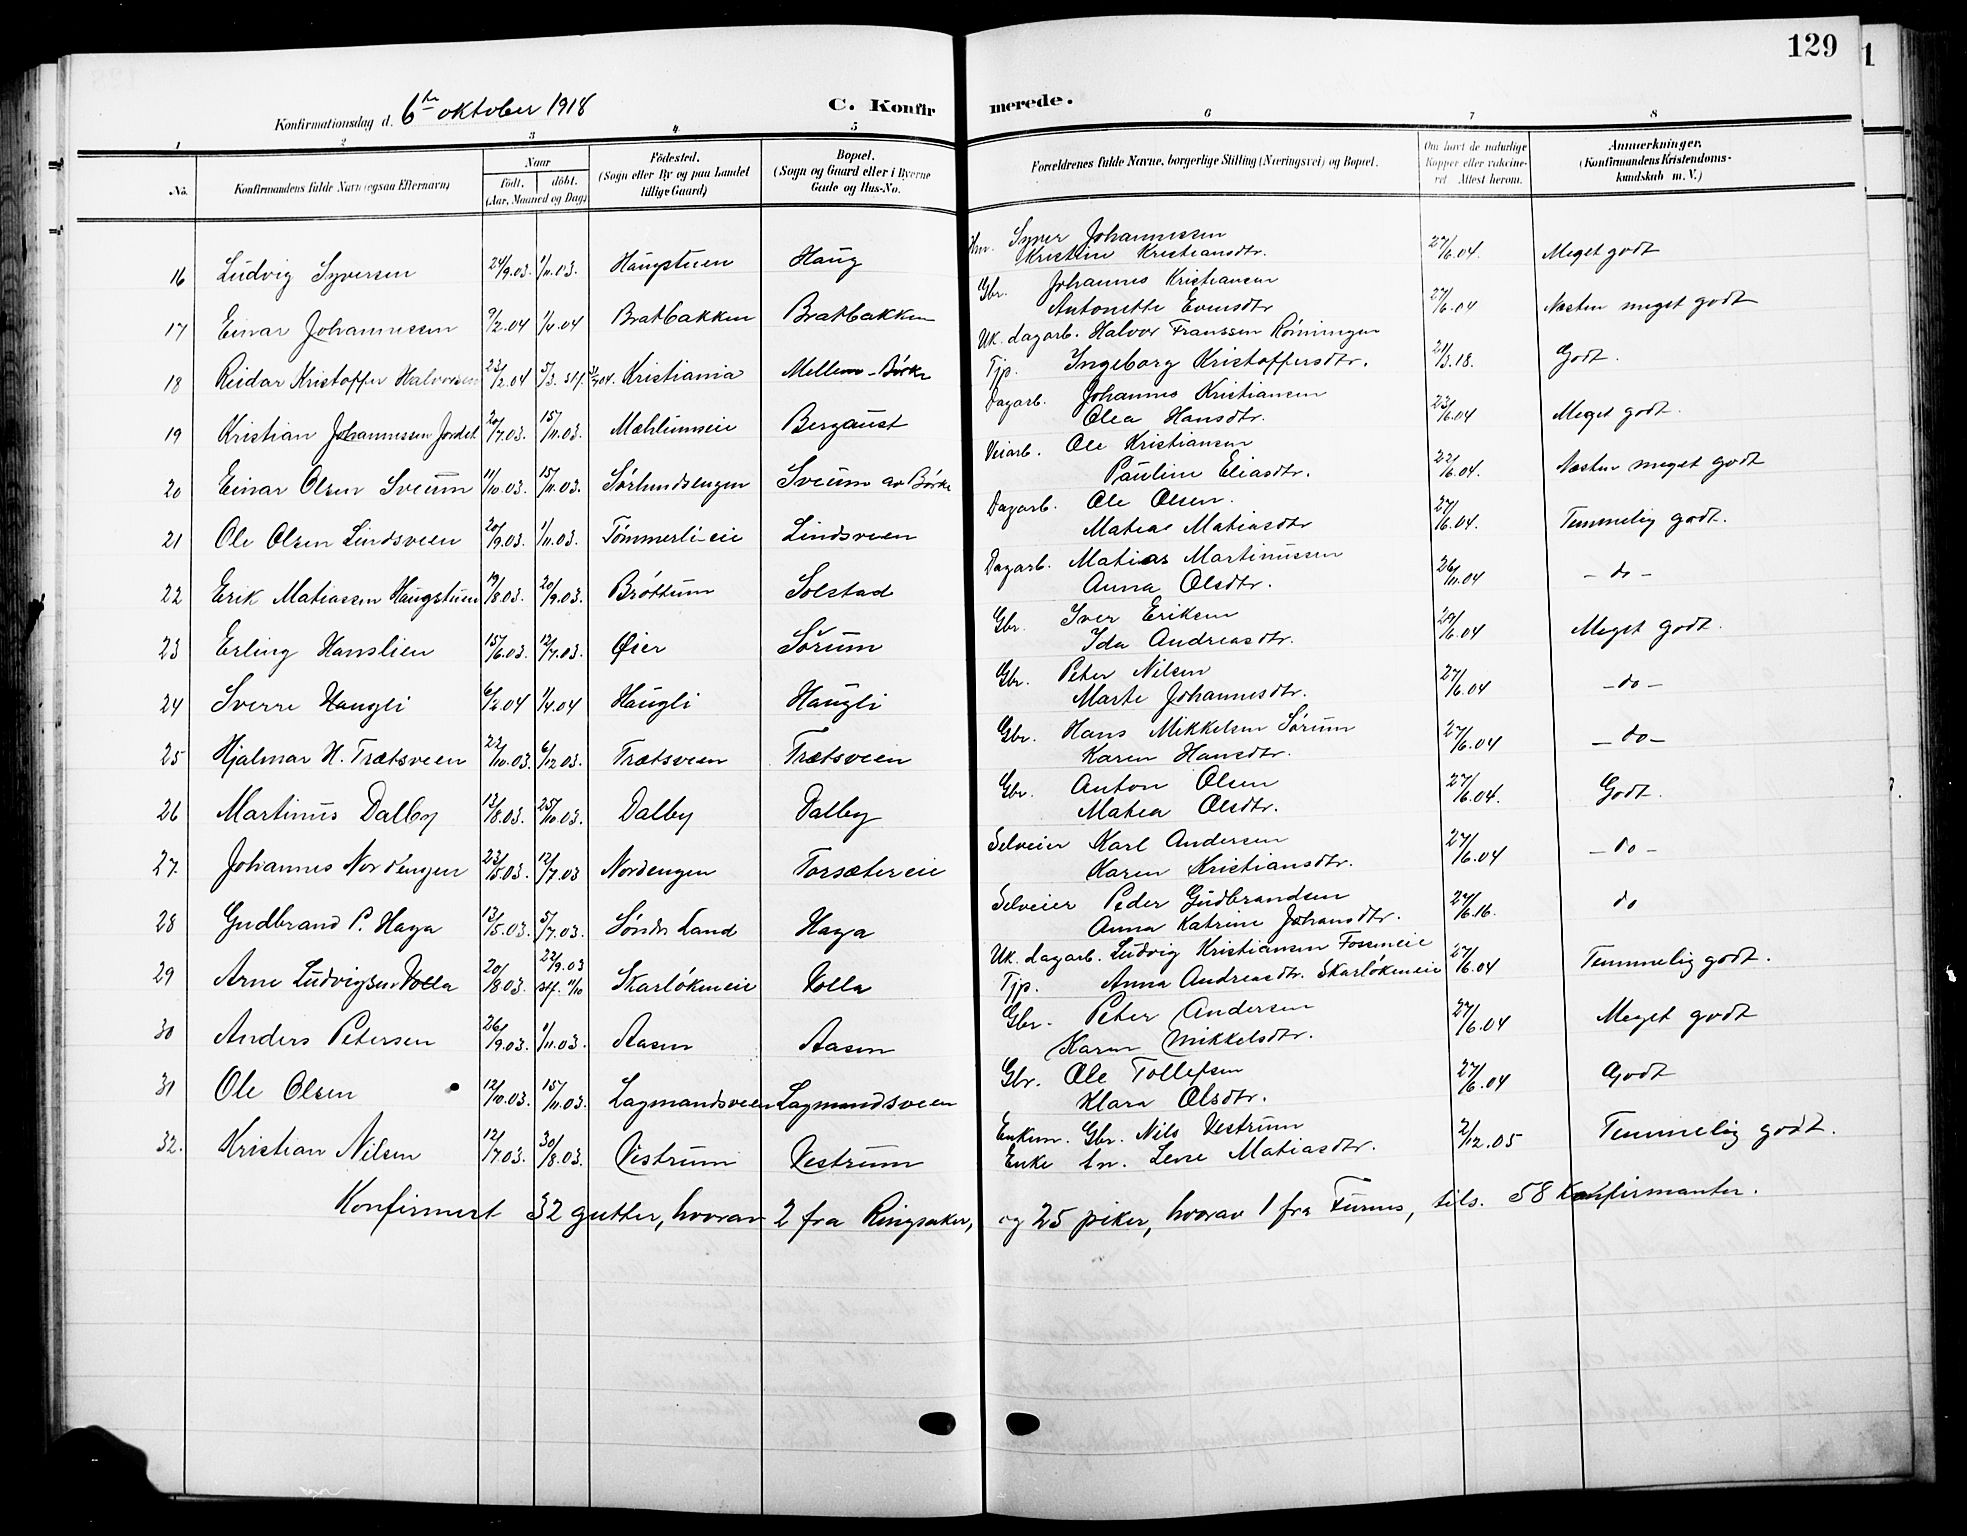 129
Konfirmationsdag d. 6te oktober 1918
C. Konfirmerede.
1 2 3 4 5 6 7 8
No. Konfirmandens fulde Navn (ogsaa Efternavn) Naar født, døbt. (Aar, Maaned og Dag) Fødested. (Sogn eller By og paa Landet tillige Gaard) Bopæl. (Sogn og Gaard eller i Byerne Gade og Hus-No. Forældrenes fulde Navne, borgerlige Stilling (Næringsvei) og Bopæl. Om havt de naturlige Kopper eller vaccineret Attest herom. Anmerkninger. (Konfirmandens Kristendomskundskab m. V.)
16 Ludvig Syversen 24/9.03. 1/11.03. Haugstuen Haug Syver Johannessen 27/6.04. Meget godt
Kristine Kristiansdtr.
17 Einar Johannessen 9/2.04 1/4.04 Bratbakken Bratbakken Gbr. Johannes Kristiansen 27/6.04 Næsten meget godt
Antonette Evensdtr
18 Reidar Kristoffer Halvorsen 23/2.04 5/3. Kristiania Mellem-Børke Uk. dagarb. Halvor Franssen Rønningen 21/3.18. Godt.
Tjp. Ingeborg Kristoffersdtr.
19 Kristian Johannessen Jordet 20/7.03. 15/11.03. Mæhlumseie Bergaust Dagarb. Johannes Kristiansen 23/6.04 Meget godt.
Olea Hansdtr.
20 Einar Olsen Sveum 11/10.03. 15/11.03. Sørlundsengen Sveum av Børke Veiarb. Ole Kristiansen 22/6.04. Næsten meget godt
Pauline Eliasdtr.
21 Ole Olsen Lindsveen 20/9.03. 1/11.03. Tømmerli-eie Lindsveen Dagarb. Ole Olsen. 27/6.04. Temmelig godt.
Mateas Matiasdtr
22 Erik Matiassen Haugstuen 19/8.03. 20/9.03. Brøttum Solstad Dagarb. Matias Martinussen 26/11.04 - do -
Anna Olsdtr.
23 Erling Hanslien 15/6.03. 12/7.03. Øier Sørum Gbr. Iver Eriksen 20/6.04 Meget godt.
Ida Andreasdtr.
24 Sverre Haugli 6/2.04 1/4.04 Haugli Haugli Gbr. Peter Nilsen 27/6.04 - do -
Marte Johannesdtr.
25 Hjalmar H. Trætsveen 22/10.03. 6/12.03. Trætsveen Trætsveen Gbr. Hans Mikkelsen Sørum 27/6.04 - do -
Karen Hansdtr.
26 Martinus Dalby 12/8.03. 25/10.03. Dalby Dalby Gbr. Anton Olsen 27/6.04. Godt.
Matea Olsdtr.
27. Johannes Nordengen 23/5.03. 12/7.03 Nordengen Torsætereie Selveier Karl Andersen 27/6.04 - do -
Karen Kristiansdtr.
28 Gudbrand P. Haga 12/5.03. 5/7.03. Søndre Land Haga Selveier Peder Gudbrandsen 24/6.16. do
Anna Katrine Johansdtr.
29 Arne Ludvigsen Volla 20/8.03. 22/9.03 stf. 11/10 Skarløkeneie Volla Uk. dagarb. Ludvig Kristiansen Fosseneie 27/6.04 Temmelig godt.
Tjp. Anna Andreasdtr. Skarløkeneie
30 Anders Petersen 26/9.03. 1/11.03. Aasen Aasen Gbr. Peter Andersen 27/6.04 Meget godt
Karen Mikkelsdtr.
31 Ole Olsen 12/10.03. 15/11.03. Lagmandsveen Lagmandsveen Gbr. Ole Tollefsen 27/6.04 Godt
Klara Olsdtr.
32. Kristian Nilsen 12/7.03. 30/8.03. Vestrum Vestrum Enkem. Gbr. Nils Vestrum 2/12.05 Temmelig godt.
Enke Lene Matiasdtr.
Konfirmert 32 gutter, hvorav 2 fra Ringsaker, og 25 piker, hvorav 1 fra Furnes, tils. 58 konfirmanter.